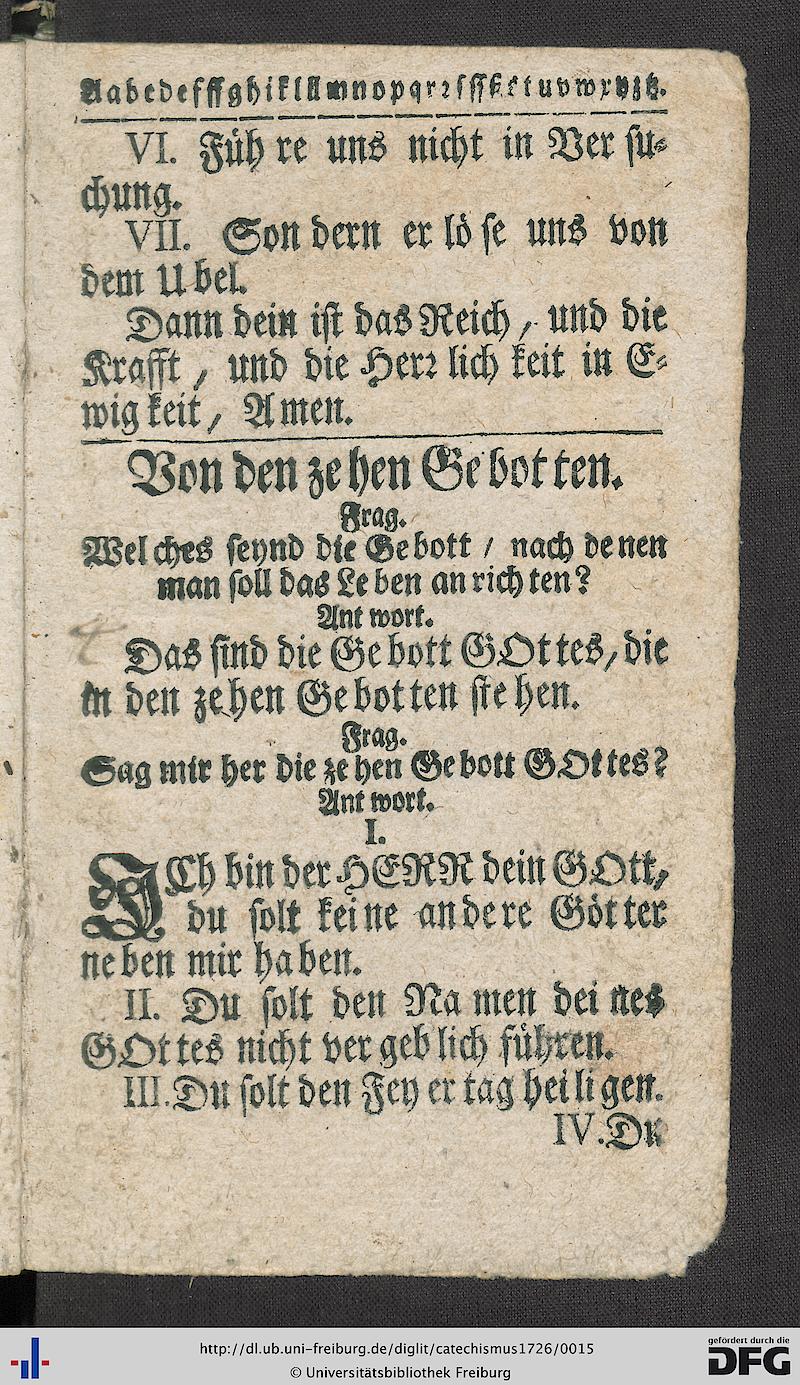 Aabcdefffghiklllmnopqrꝛſſſßſttuvwxyztz.
VI. Füh re uns nicht in Ver ſu⸗
chung.
VII. Son dern er lö ſe uns von
dem U bel.
Dann dein iſt das Reich, und die
Krafft, und die Herꝛ lich keit in E⸗
wig keit, Amen.
Von den ze hen Ge bot ten.
Frag.
Wel ches ſeynd die Ge bott / nach de nen
man ſoll das Le ben an rich ten?
Ant wort.
Das ſind die Ge bott GOt tes, die
in den ze hen Ge bot ten ſte hen.
Frag.
Sag mir her die ze hen Ge bott GOt tes?
Ant wort.
I.
ICh bin der HERR dein GOtt,
du ſolt kei ne an de re Göt ter
ne ben mir ha ben.
II. Du ſolt den Na men dei nes
GOt tes nicht ver geb lich führen.
III. Du ſolt den Fey er tag hei li gen.
IV. Du
http://dl.ub.uni-freiburg.de/diglit/catechismus1726/0015
© Universitätsbibliothek Freiburg
gefördert durch die
DFG